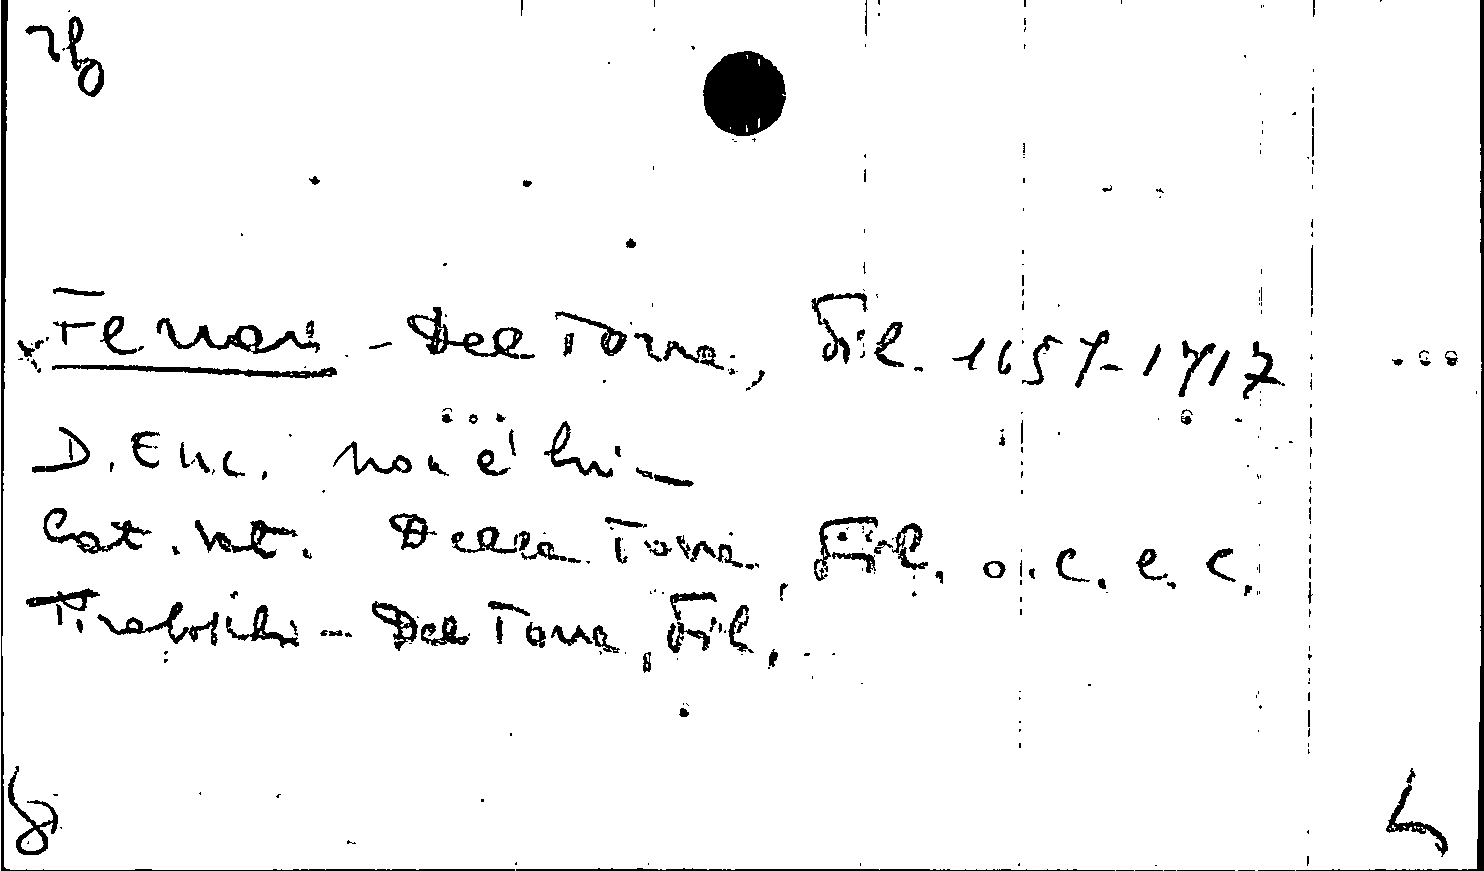 Ferrari - Del Torre, Fil. 1657-1717
D. Enc. non è lui -
Cat. vat. Della Torre, Fil. o. c. e. c.
Tiraboschi - Del Torre, Fil.